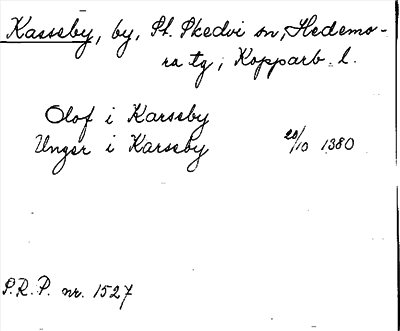 Kasseby, by, St. Skedvi sn, Hedemo-
ra tg, Kopparb. l.
Olof i Karseby
Unger i Karseby 20/10 1380
S.R.P. nr. 1527